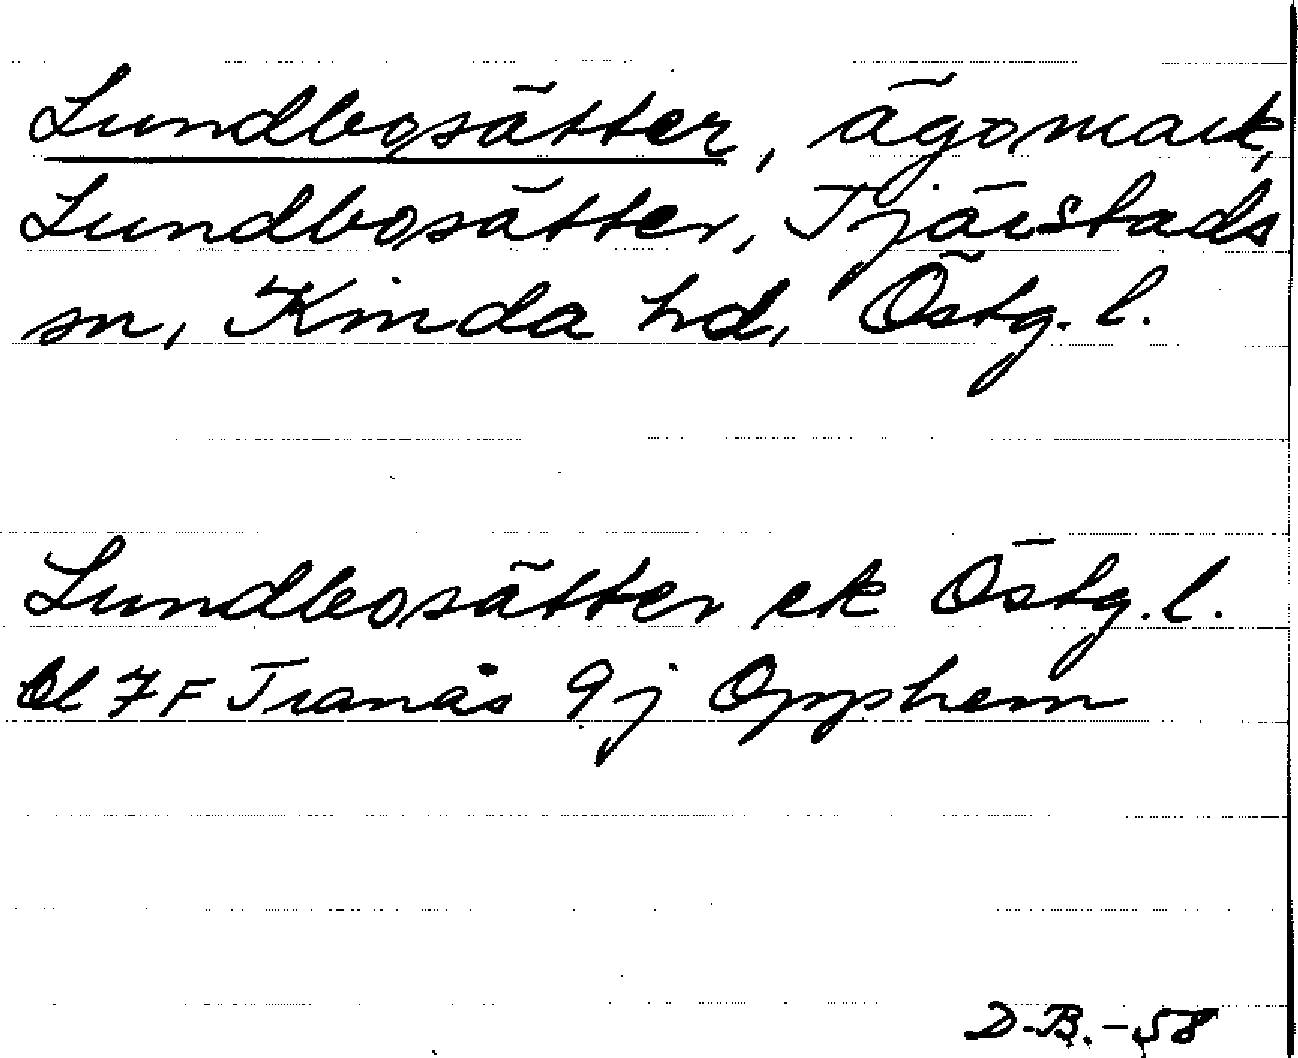 Lundbosätter, ägomark,
Lundbosätter, Tjärstads
sn, Kinda hd, Östg. l.
Lundbosätter ek Östg. l.
Bl 7F Tranås 9j Opphem
D.B. -58